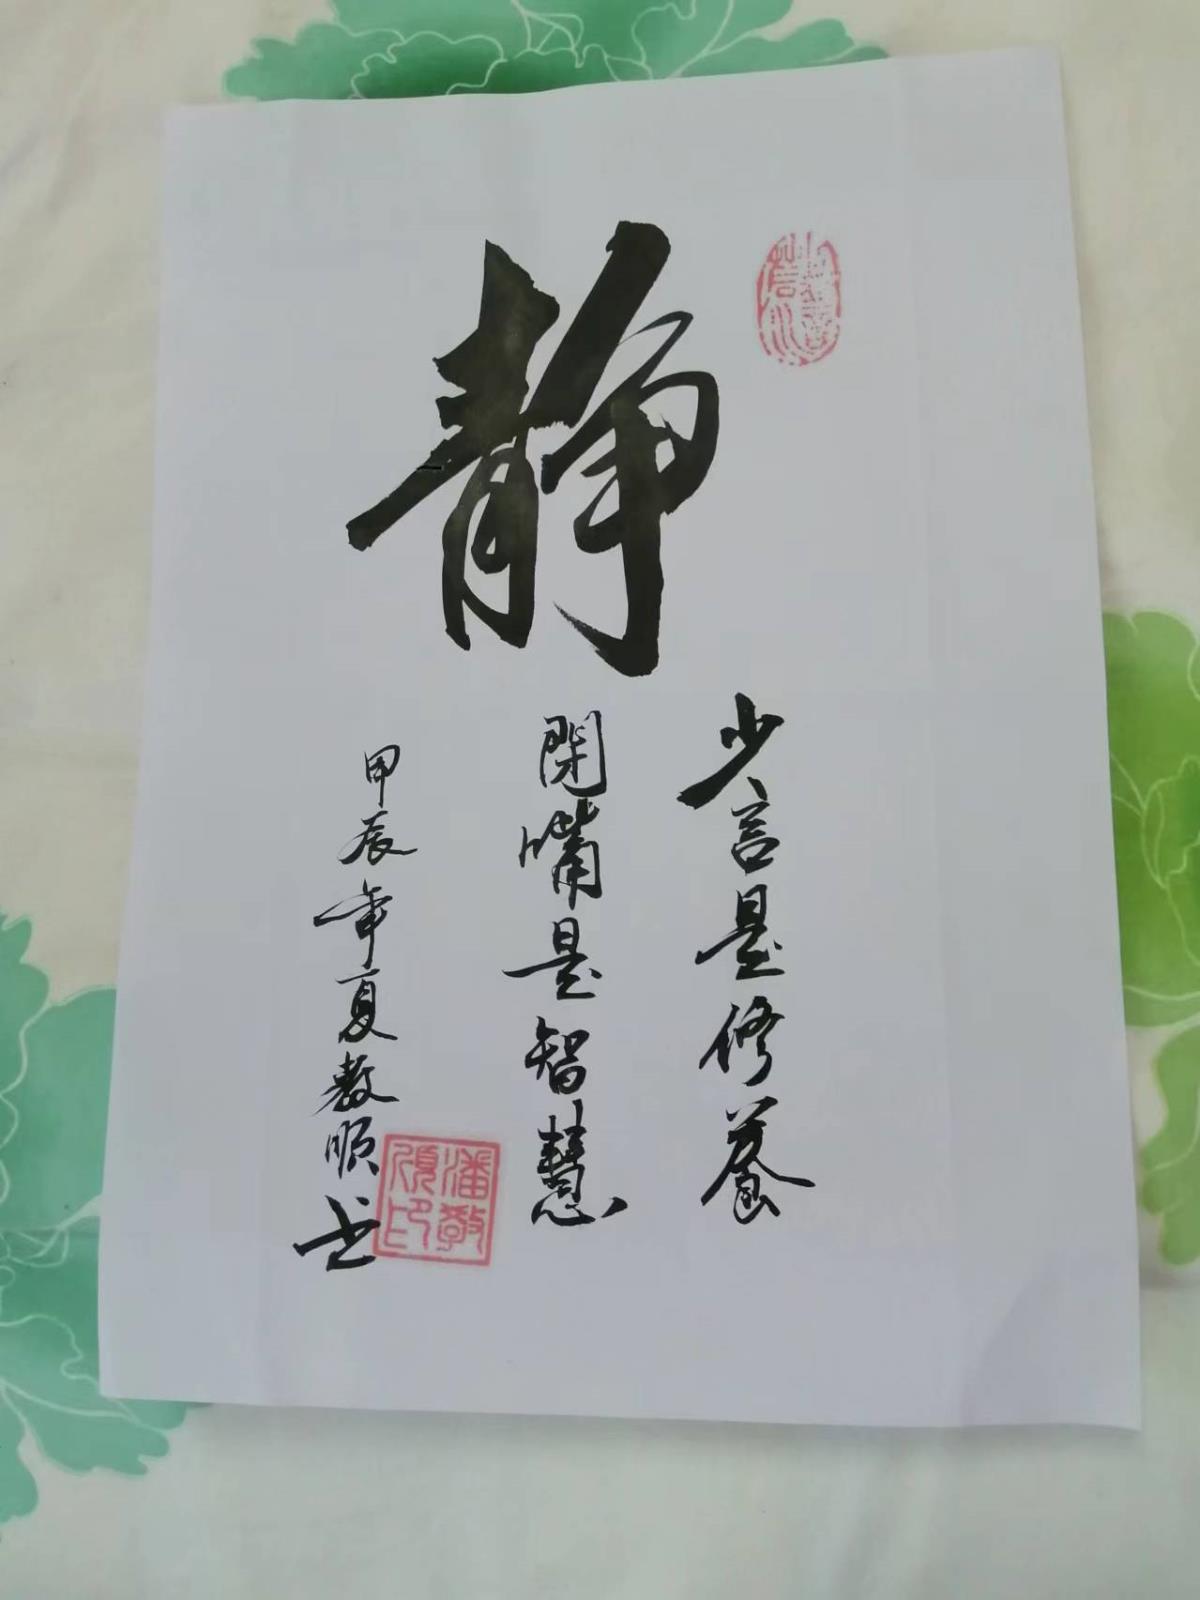 静
少言是修養
閉嘴是智慧
甲辰年夏敖順书
潘敖順印